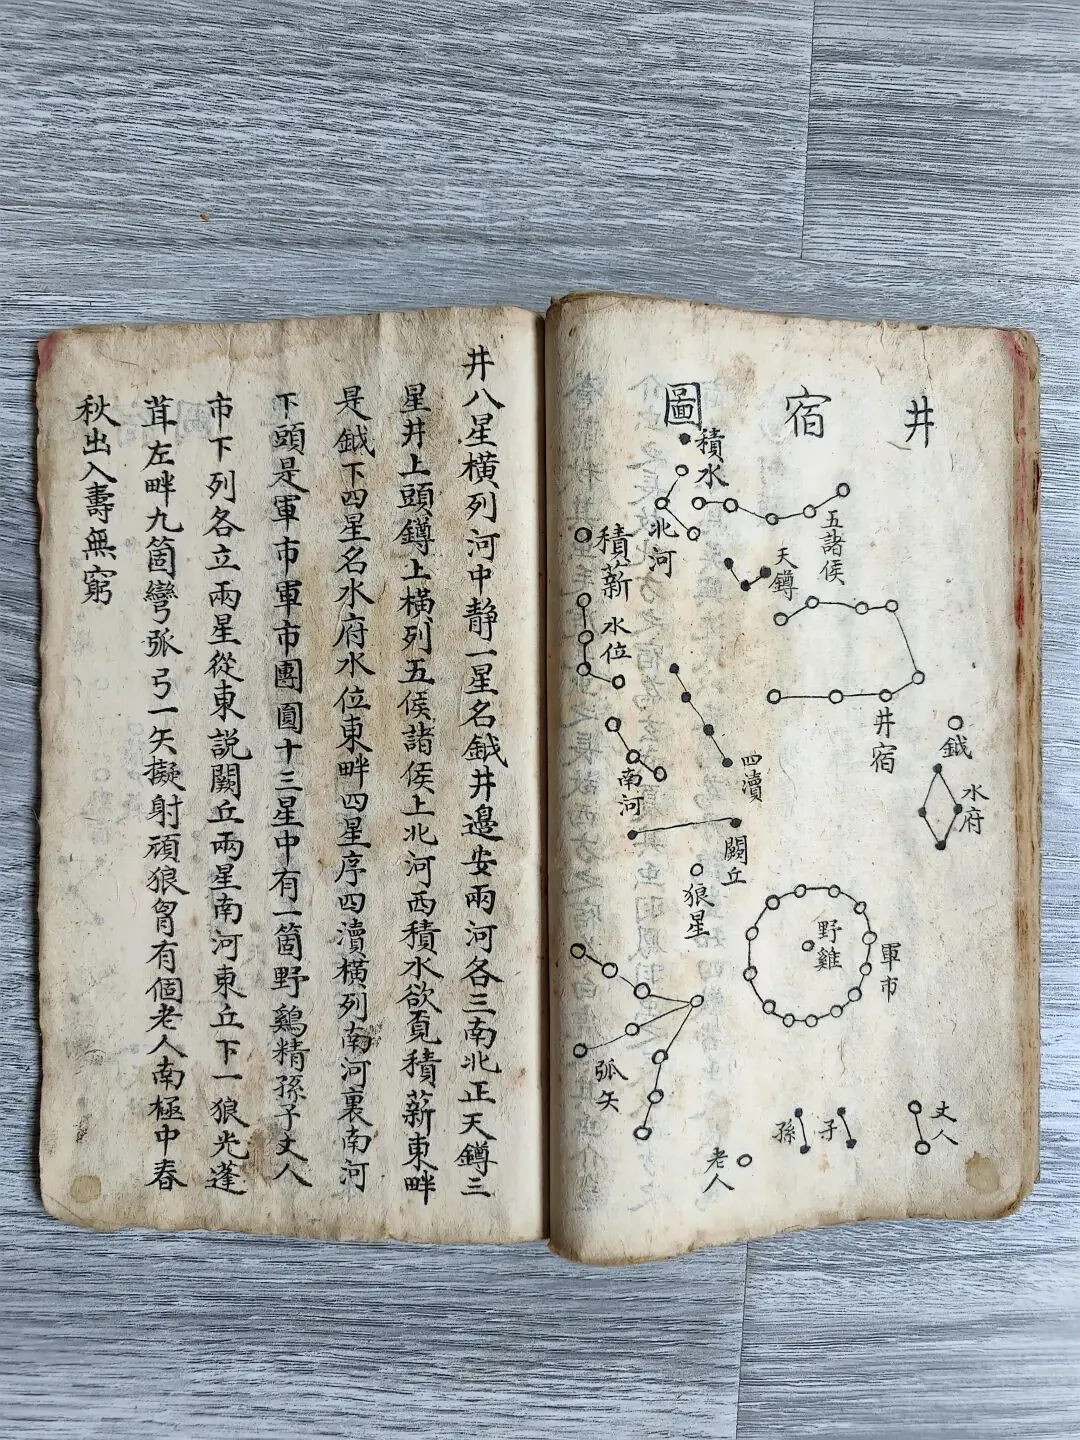 井宿圖
積水
北河
五諸侯
天鐏
積薪
水位
井宿
鉞
水府
南河
四瀆
闕丘
狼星
野雞
軍市
弧矢
孫
子
丈人
老人
井八星橫列河中静一星名鉞井邊安兩河各三南北正天鐏三
星井上頭鐏上橫列五侯諸侯上北河西積水欲覓積薪東畔
是鉞下四星名水府水位東畔四星序四瀆橫列南河裏南河
下頭是軍市軍市團圓十三星中有一箇野鷄精孫子丈人
市下列各立兩星從東説闕丘兩星南河東丘下一狼光蓬
茸左畔九箇彎弧弓一矢擬射頑狼胷有個老人南極中春
秋出入壽無窮